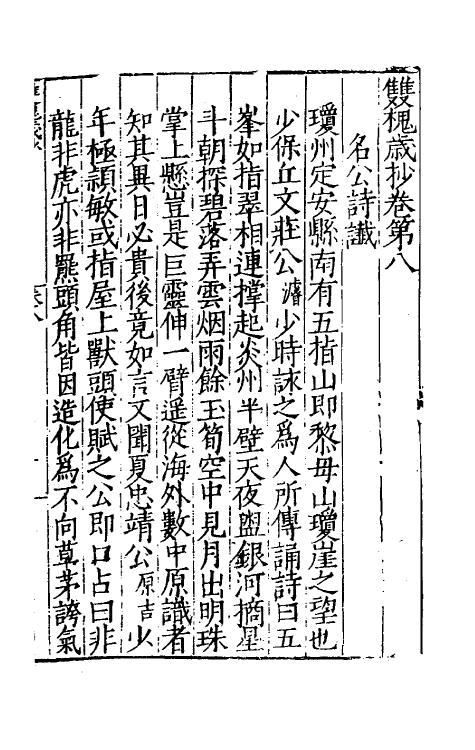 雙槐歲抄卷第八
名公詩讖
瓊州定安縣南有五指山即黎母山瓊崖之望也
少保丘文莊公濬少時詠之為人所傳誦詩曰五
峯如指翠相連撐起炎州半壁天夜盥銀河摘星
斗朝探碧落弄雲烟雨餘玉筍空中見月出明珠
掌上懸豈是巨靈伸一臂遥從海外數中原識者
知其異日必貴後竟如言又聞夏忠靖公原吉少
年極頴敏或指屋上獸頭使賦之公即口占曰非
龍非虎亦非羆頭角皆因造化為不向草茅誇氣
卷八